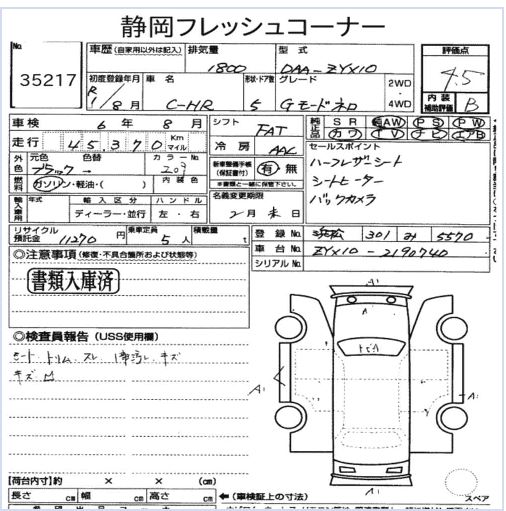 静岡フレッシュコーナー
No. 35217
車歴 (自家用以外は記入) 排気量 1800 型式 DAA-ZYX10 評価点 4.5
初度登録年月 R1/8月 車名 C-HR 形状・ドア数 5 グレード Gモードネロ 2WD 4WD 内装補助評価 B
車検 6年 8月 シフト FAT 純正品 SR AW PS PW
カワ TV ナビ エアB
走行 45370 Km マイル 冷房 AAC セールスポイント
外色 元色 ブラック 色替 → カラーNo. 203 新車整備手帳(保証書付) 有・無 ハーフレザーシート
燃料 ガソリン・軽油・( ) 内装色 *保証書と一緒に保管して下さい。 シートヒーター
輸入車用 年式 輸入区分 ハンドル 名義変更期限 バックカメラ
ディーラー・並行 左・右 2月末日
リサイクル預託金 11270円 乗車定員 5人 積載量 t 登録No. 浜松 301 み 5570
車台No. ZYX10-2190740
シリアルNo.
◎注意事項 (修復・不具合箇所および状態等)
書類入庫済
◎検査員報告 (USS使用欄)
シート トリム スレ 1帯汚レ キズ
キズ凹
A1
A1
A1
A1
スペア
【荷台内寸】約 × × (cm)
長さ cm 幅 cm 高さ cm ←(車検証上の寸法)